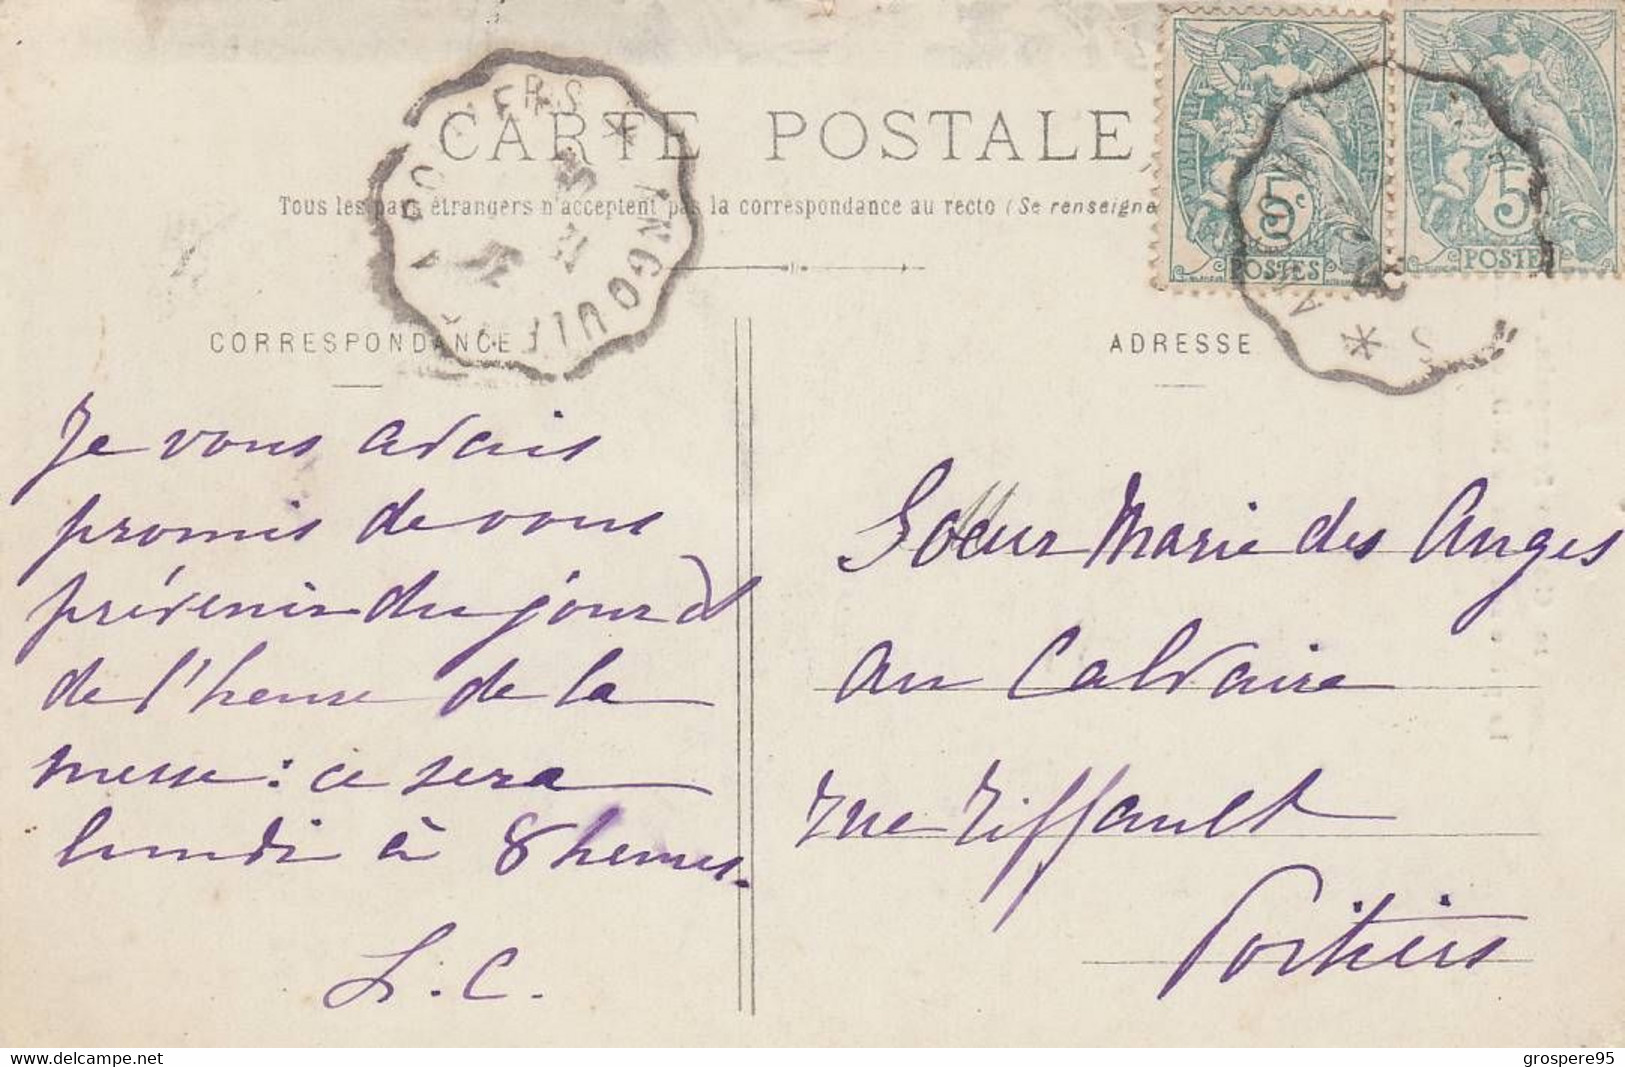 CARTE POSTALE
Tous les pays étrangers n'acceptent pas la correspondance au recto (Se renseigne
POSTES
5c
POSTES
5
ANGOULÊ
CORRESPONDANCE
Je vous avais
promis de vous
prévenir du jour et
de l'heure de la
messe : ce sera
lundi à 8 heures.
L. C.
ADRESSE
Soeur Marie des Anges
au Calvaire
rue Riffault
Poitiers
www.delcampe.net
grospere95